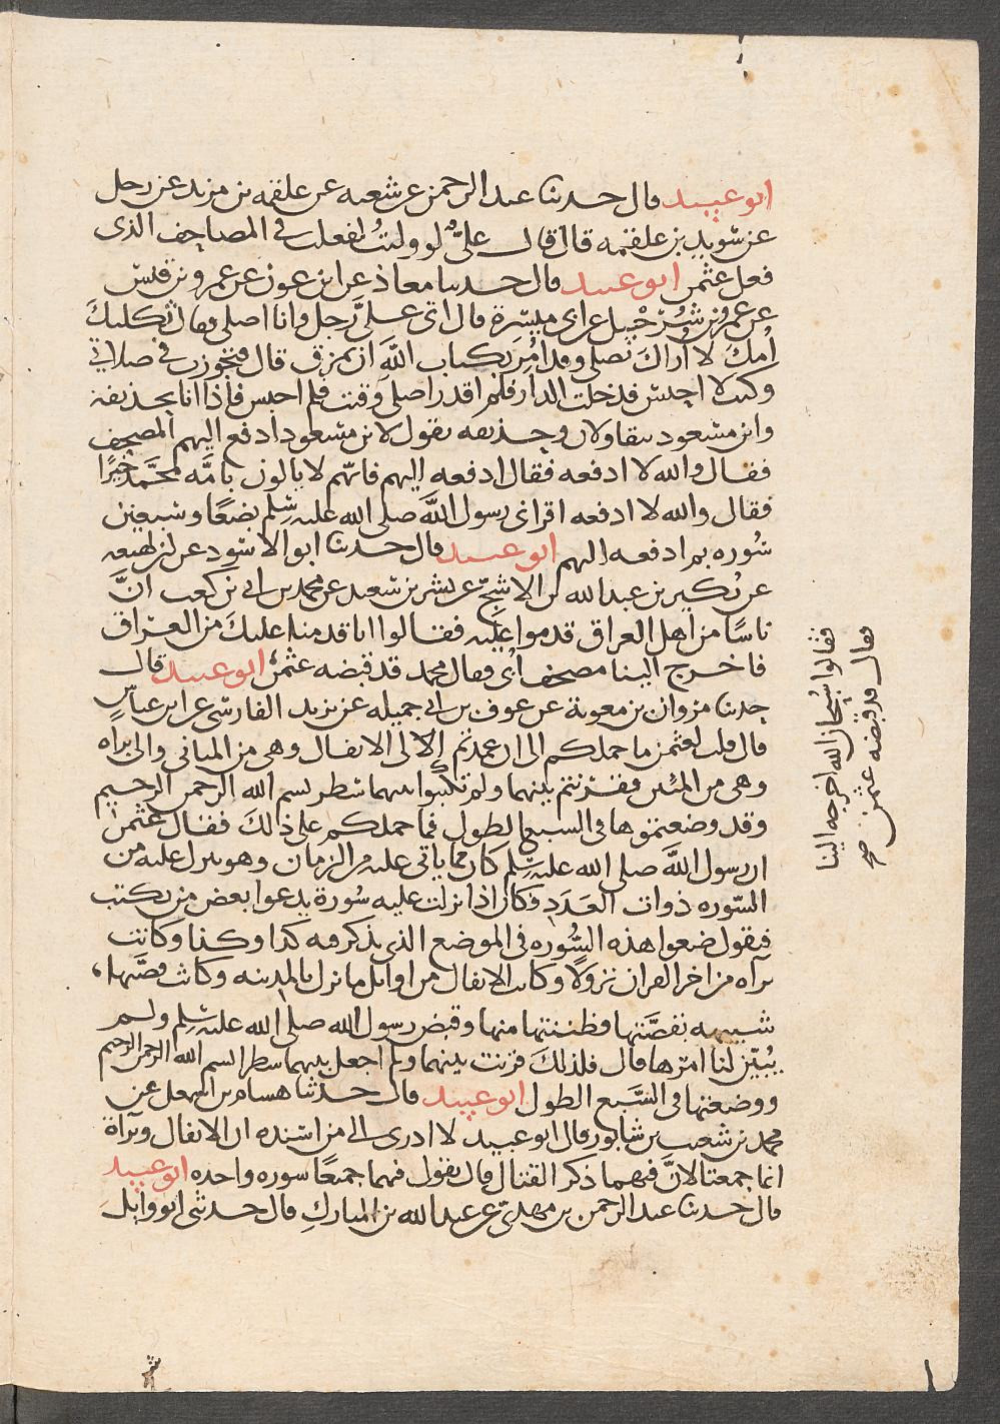 ابو عبيد قال حدثنا عبد الرحمن عن شعبه عن علقمه بن مرثد عن رجل
عن سويد بن علقمه قال قال علي لو وليت لفعلت في المصاحف الذي
فعل عثمن ابو عبيد قال حدثنا معاذ عن ابن عون عن عمرو بن قيس
عن عمرو بن شرحبيل عن ابي ميسرة قال اتى علي رجل وانا اصلي فقال ثكلتك
أمك لا أراك تصلي وقد امر بكتاب الله ان يمزق قال فتجوزت في صلاتي
وكنت لا احبس فدخلت الدار فلم اقدر اصلي وقت فلم احبس فاذا انا بحذيفة
وابن مسعود يتقاولان وحذيفه يقول لابن مسعود ادفع اليهم المصحف
فقال والله لا ادفعه فقال ادفعه اليهم فانهم لا يالون بامه محمد خيرا
فقال والله لا ادفعه اقراني رسول الله صلى الله عليه وسلم بضعا وسبعين
سوره ثم ادفعه اليهم ابو عبيد قال حدثنا ابو الاسود عن ابن لهيعه
عن بكير بن عبد الله بن الاشج عن بشر بن سعيد عن محمد بن ابي بن كعب ان
ناسا من اهل العراق قدموا عليه فقالوا انا قدمنا عليك من العراق
فاخرج الينا مصحف أبي فقال محمد قد قبضه عثمن ابو عبيد قال
حدثنا مروان بن معوية عن عوف بن ابي جميله عن يزيد الفارسي عن ابن عباس
قال قلت لعثمن ما حملكم الى ان عمدتم إلا الى الانفال وهي من المثاني والى براه
وهي من المئين فقرنتم بينهما ولم تكتبوا بينهما سطر بسم الله الرحمن الرحيم
وقد وضعتموها في السبع الطول فما حملكم على ذلك فقال عثمن
ان رسول الله صلى الله عليه وسلم كان مما ياتي عليه من الزمان وهو ينزل عليه من
السوره ذوات العدد فكان اذا نزلت عليه سورة يدعوا بعض من يكتب
فيقول ضعوا هذه السوره في الموضع الذي يذكر فيه كذا وكذا وكانت
برآه من اخر القران نزولا وكانت الانفال من اوائل ما نزل بالمدينه وكانت قصتها
شبيهه بقصتها فظننتها منها وقبض رسول الله صلى الله عليه وسلم ولم
يبين لنا امرها قال فلذلك قرنت بينهما ولم اجعل بينهما سطر بسم الله الرحمن الرحيم
ووضعتها في السبع الطول ابو عبيد قال حدثنا هشام بن اسمعيل عن
محمد بن شعيب بن شابور قال ابو عبيد لا ادرى الى من اسنده ان الانفال وبرآة
انما جمعتا لان فيهما ذكر القتال قال يقول فهما جميعا سوره واحده ابو عبيد
قال حدثنا عبد الرحمن بن مهدي عن عبد الله بن المبارك قال حدثني ابو وايل
فقالوا سبحان الله اخرجه الينا
فقال قد قبضه عثمن صح